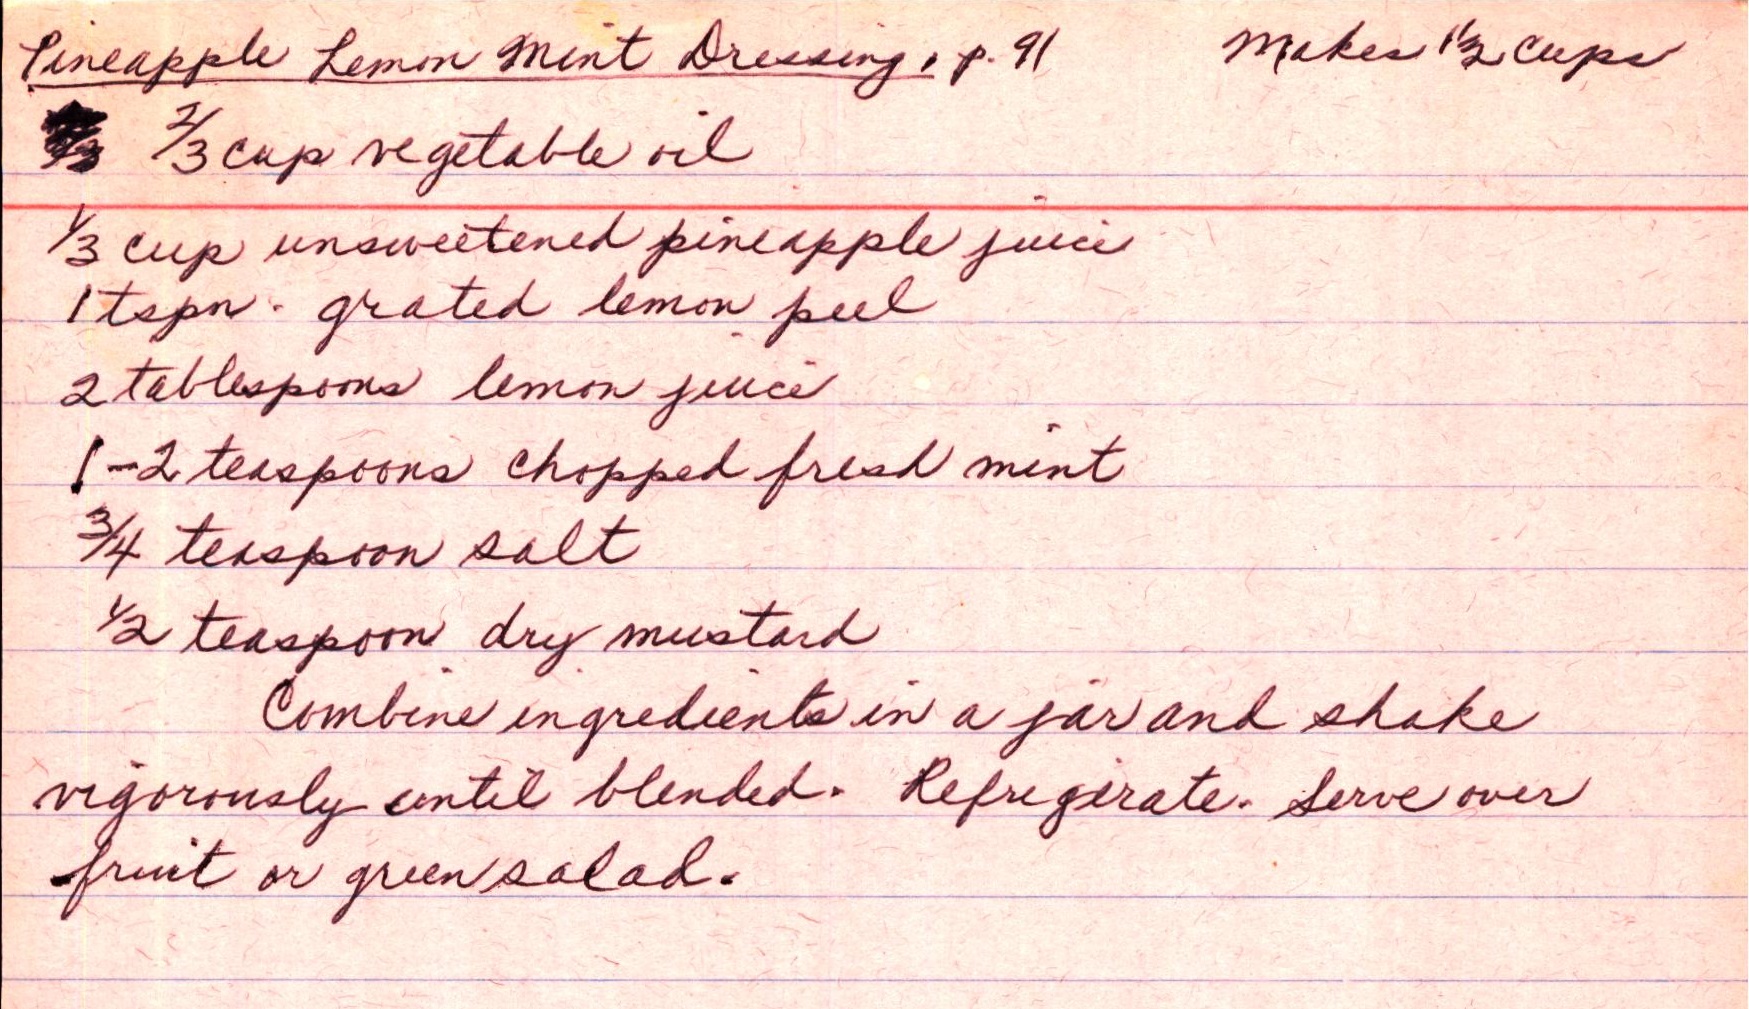 Pineapple Lemon Mint Dressing, p. 91 Makes 1 1/2 cups
2/3 cup vegetable oil
1/3 cup unsweetened pineapple juice
1 tspn. grated lemon peel
2 tablespoons lemon juice
1-2 teaspoons chopped fresh mint
3/4 teaspoon salt
1/2 teaspoon dry mustard
Combine ingredients in a jar and shake
vigorously until blended. Refrigerate. Serve over
fruit or green salad.